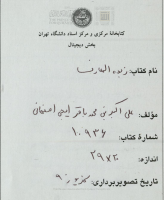 کتابخانهٔ مرکزی و مرکز اسناد دانشگاه تهران
بخش دیجیتال
نام کتاب: زبدة المعارف
مؤلف: علی اکبر بن محمد باقر ایجی اصفهانی
شمارهٔ کتاب:
۱۰۹۳۶
اندازه: ۲۹۷۲
تاریخ تصویربرداری: